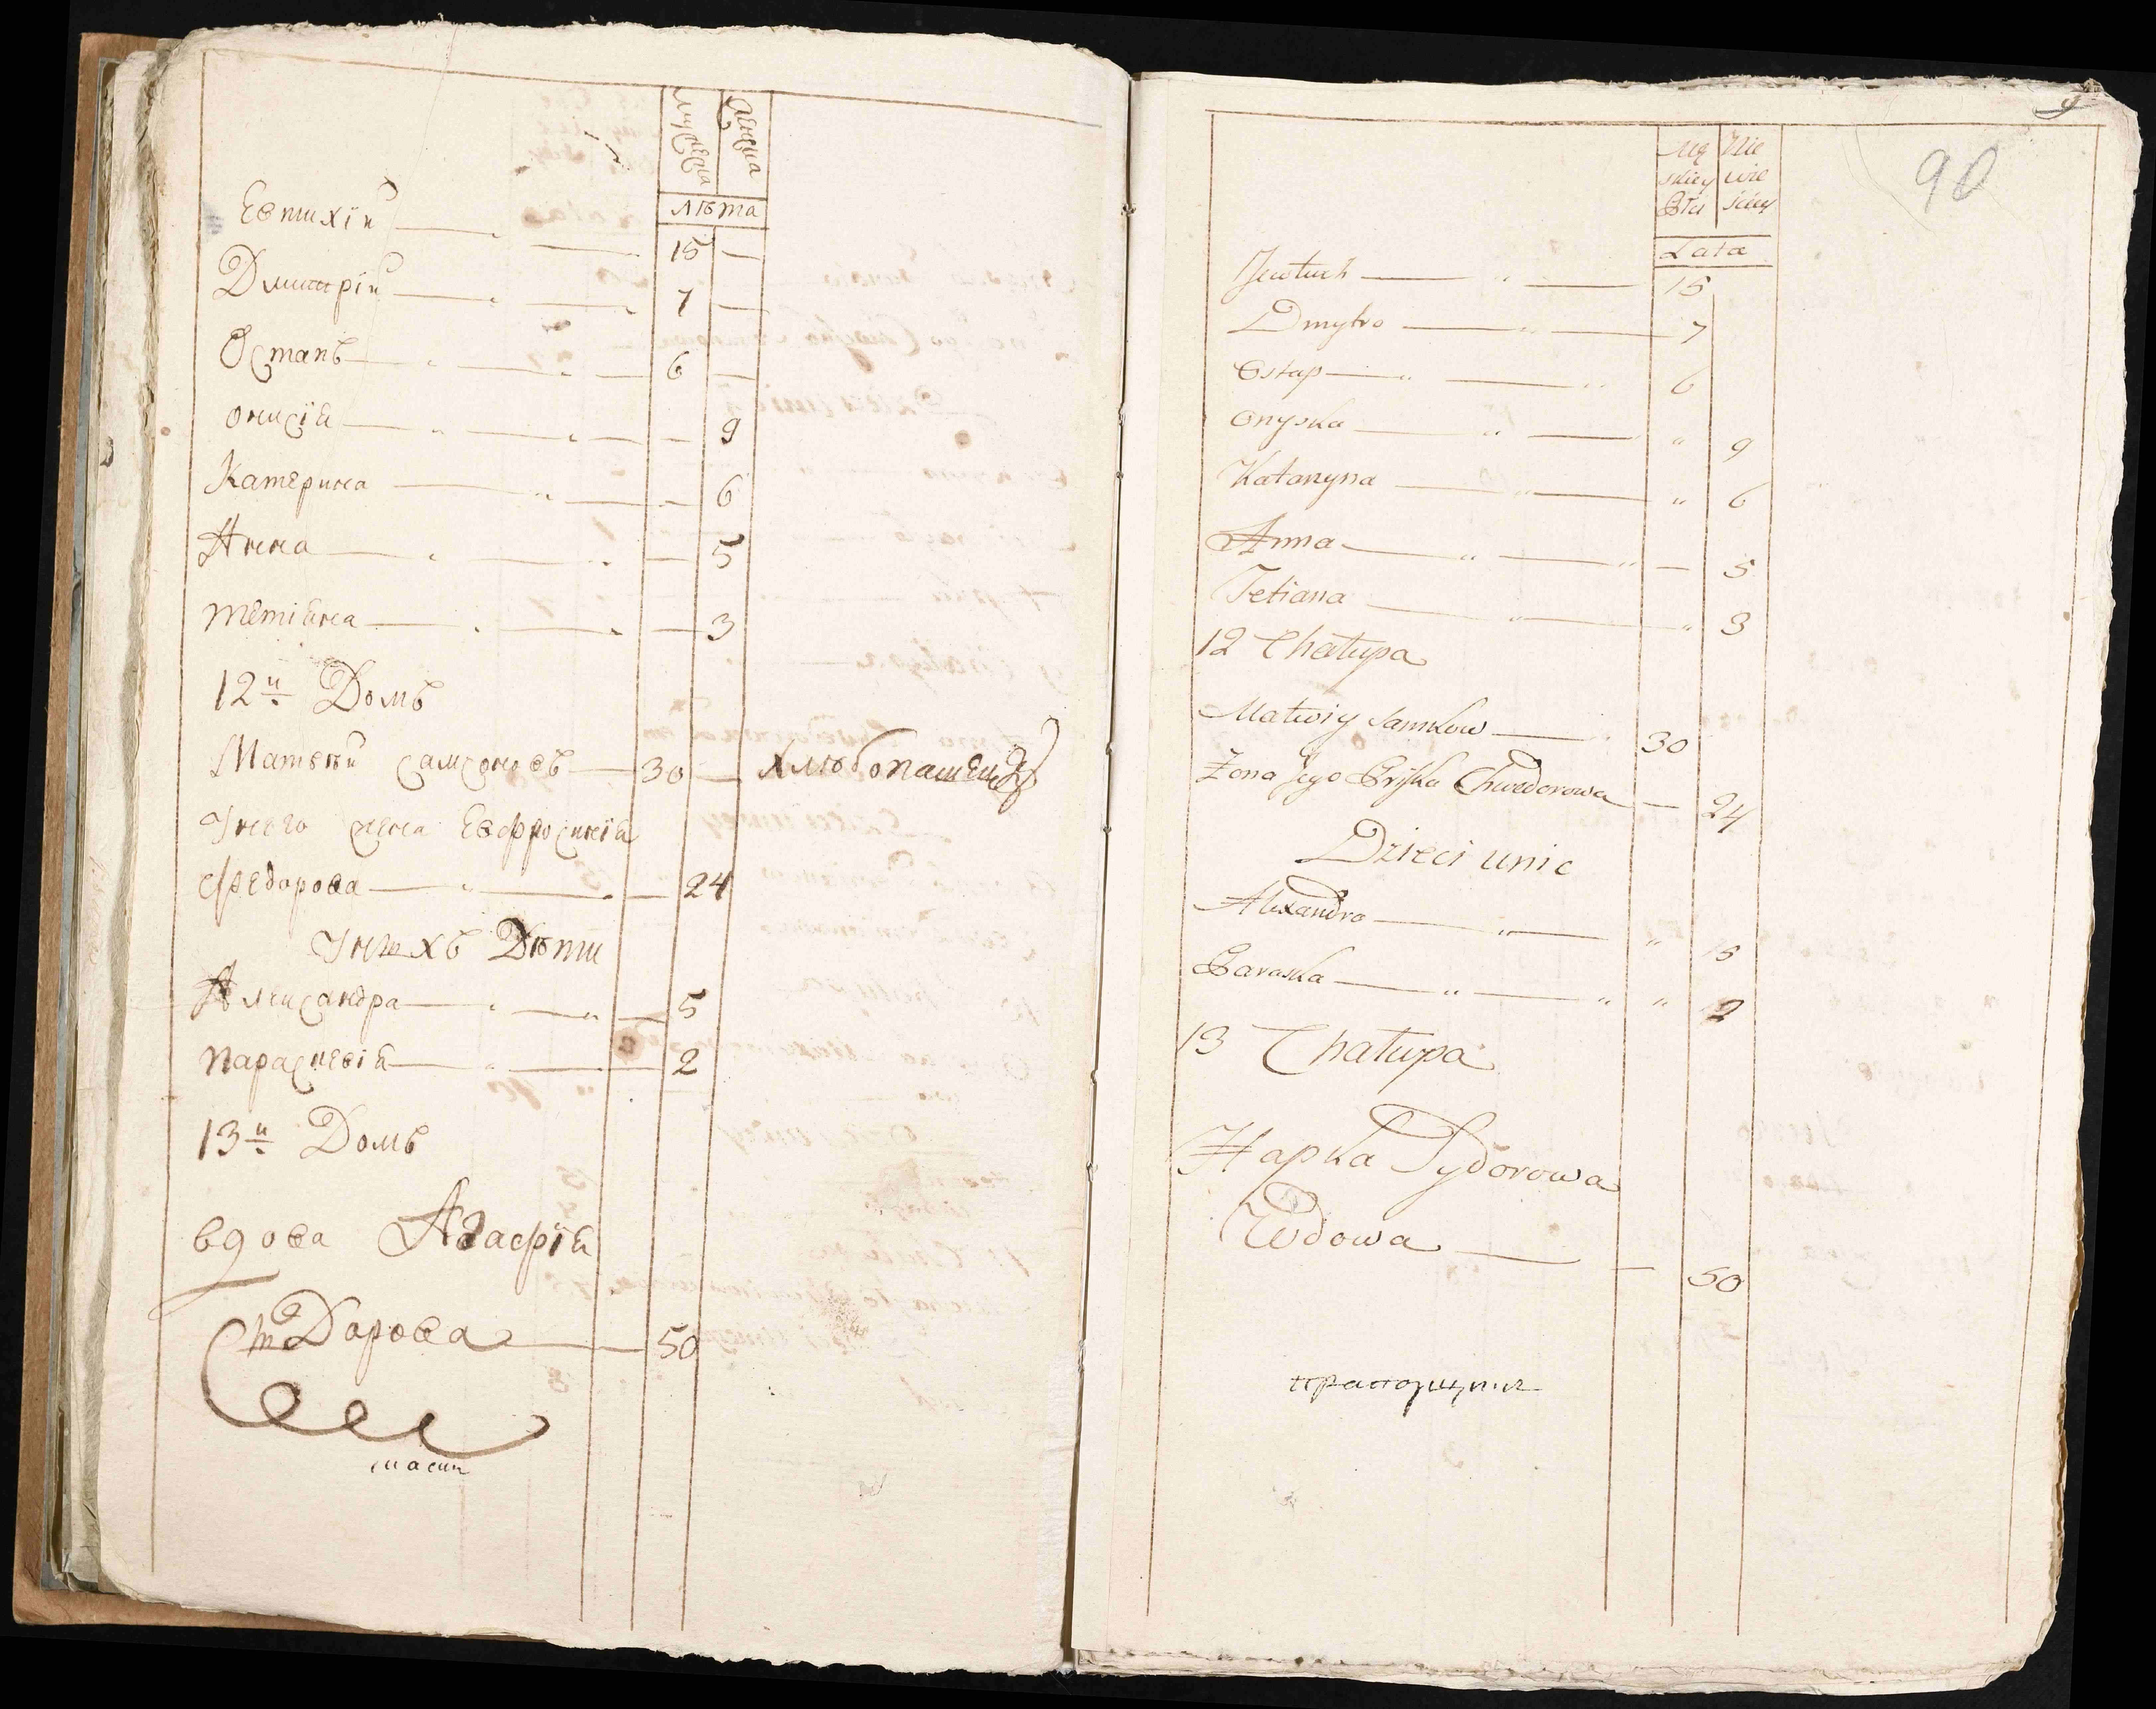 мужеска женска
лѣта
Евтихїй 15
Дмитрїй 7
Остапъ 6
онисїя 9
Катерина 6
Анна 5
тетіяна 3
12й Домъ
Матвѣй самсоновъ 30 хлѣбопашецъ
У него жена Евфросинїя
Федорова 24
У нихъ Дѣти
Александра 5
параскевія 2
13й Домъ
вдова Агафїя
Сидорова 50
90
Mę Nie
skiey wie
Płciściey
Lata
Jewtuch 15
Dmytro 7
Ostap 6
Onyska 9
Katarzyna 6
Anna 5
Tetiana 3
12 Chałupa
Matwiy 30
Żona Jego Pryska Chwedorowa 24
Dzieci unic
Alexandra 5
Paraska 2
13 Chałupa
Hapka Sydorowa
Wdowa 50